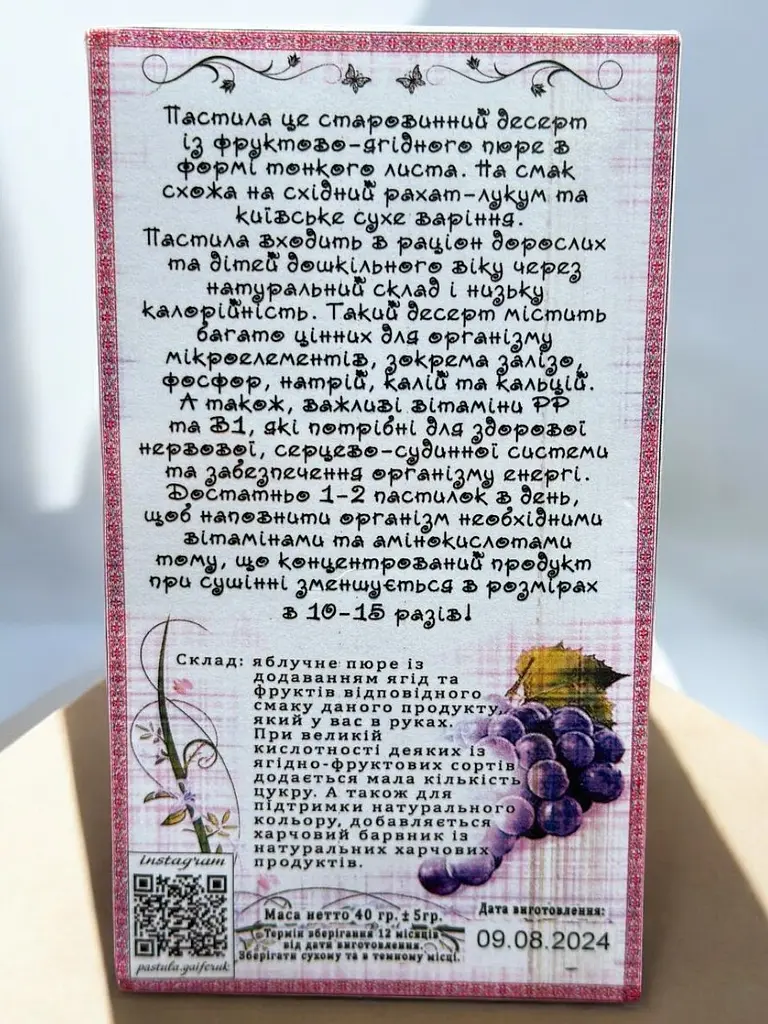 Пастила це старовинний десерт
із фруктово-ягідного пюре в
формі тонкого листа. На смак
схожа на східний рахат-лукум та
київське сухе варіння.
Пастила входить в раціон дорослих
та дітей дошкільного віку через
натуральний склад і низьку
калорійність. Такий десерт містить
багато цінних для організму
мікроелементів, зокрема залізо,
фосфор, натрій, калій та кальцій.
А також, важливі вітаміни РР
та В1, які потрібні для здорової
нервової, серцево-судинної системи
та забезпечення організму енергі.
Достатньо 1-2 пастилок в день,
щоб наповнити організм необхідними
вітамінами та амінокислотами
тому, що концентрований продукт
при сушінні зменшується в розмірах
в 10-15 разів!
Склад: яблучне пюре із
додаванням ягід та
фруктів відповідного
смаку даного продукту,
який у вас в руках.
При великій
кислотності деяких із
ягідно-фруктових сортів
додається мала кількість
цукру. А також для
підтримки натурального
кольору, добавляється
харчовий барвник із
натуральних харчових
продуктів.
instagram
pastula.gaifcruk
Маса нетто 40 гр. ± 5гр.
Термін зберігання 12 місяців
від дати виготовлення.
Зберігати сухому та в темному місці.
Дата виготовлення:
09.08.2024